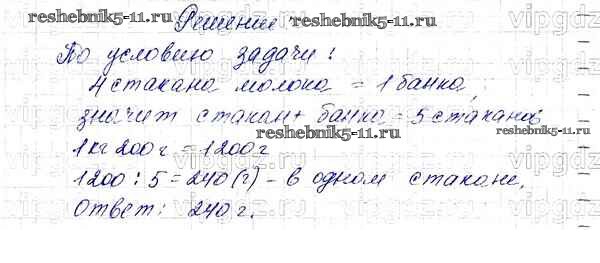 Решение
reshebnik5-11.ru reshebnik5-11.ru vipgdz
По условию задачи:
4 стакана молока = 1 банка,
значит стакан + банка = 5 стаканов
reshebnik5-11.ru reshebnik5-11.ru
1 кг 200 г = 1200 г
1200 : 5 = 240 (г) - в одном стакане.
Ответ: 240 г.